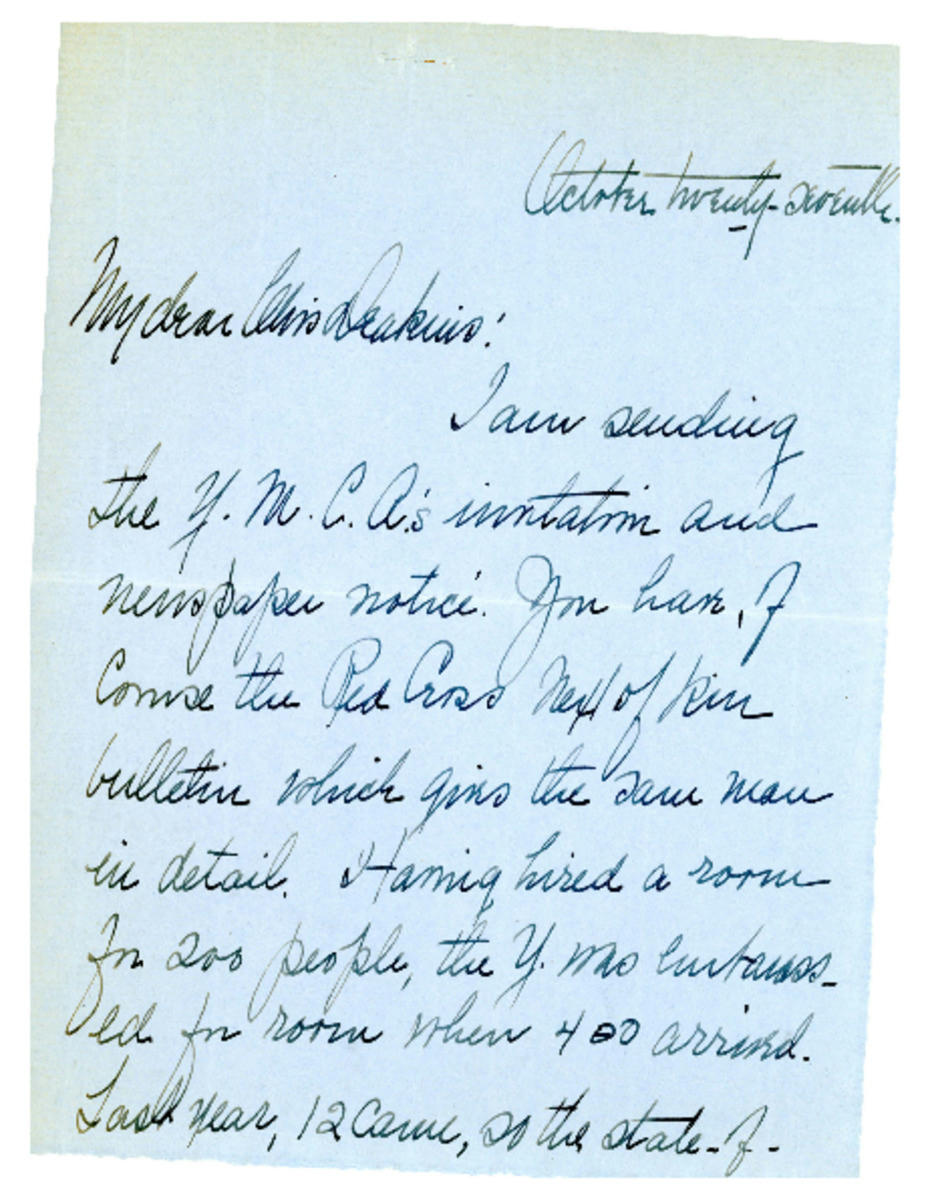 October twenty-seventh.
My dear Miss Deakins:
I am sending
the Y. M. C. A.'s invitation and
newspaper notice. You have, of
course the Red Cross Next of Kin
bulletin which gives the same
in detail. Having hired a room
for 200 people, the Y. was embarrass-
ed for room when 400 arrived.
Last year, 12 came, so the state-of-